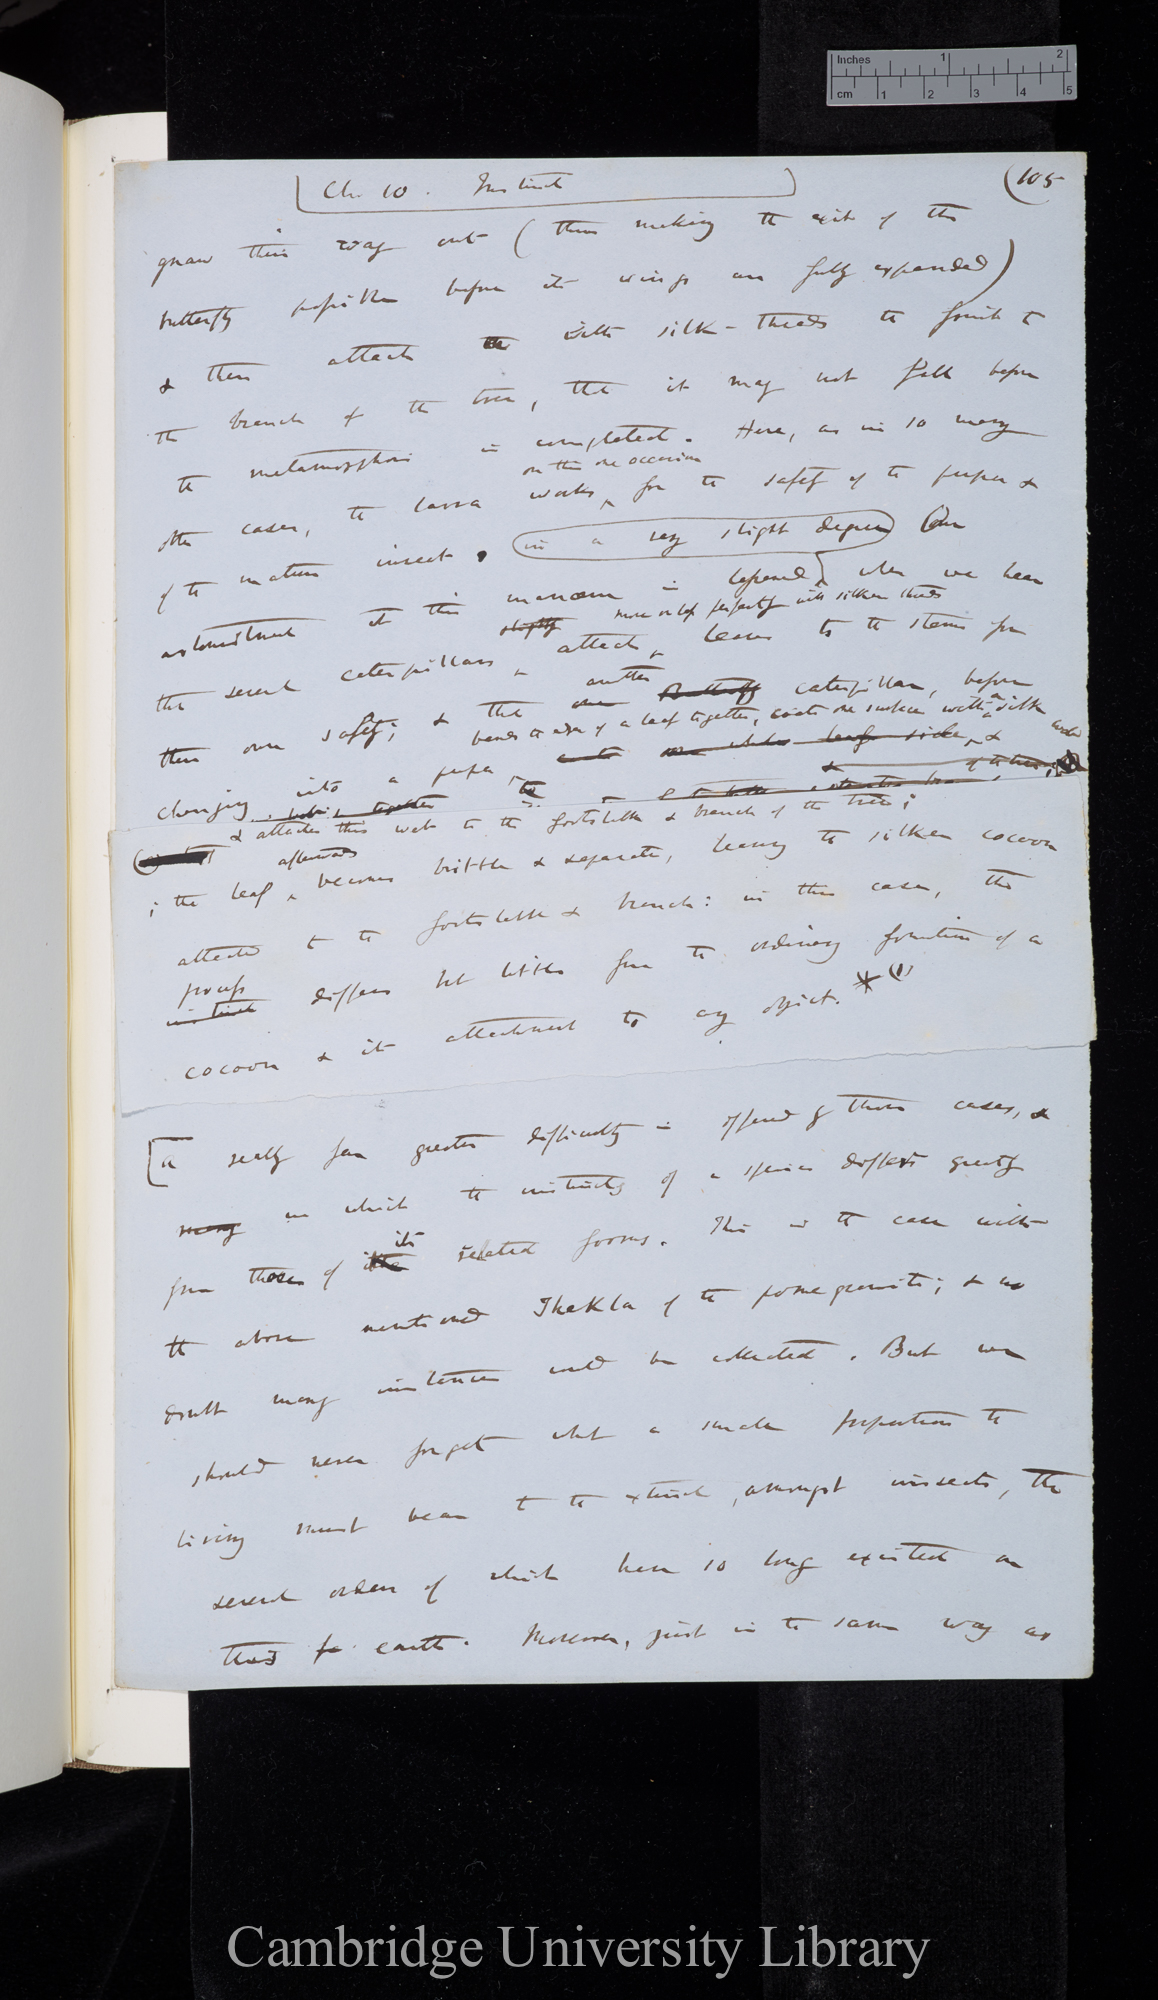 Inches 1 2
cm 1 2 3 4 5
Ch. 10. Instinct
(105
gnaw their way out (thus making the exit of the
butterfly possible before its wings are fully expanded)
& then attach the with silk-threads the fruit to
the branch of the tree, that it may not fall before
the metamorphosis is completed. Here, as in so many
on this one occasion
other cases, the larva works, for the safety of the pupa &
of the mature insect. in a very slight degree Our
astonishment at this manœuvre is lessened when we hear
slightly more or less perfectly with silken threads
the several caterpillars attach leaves to the stems for
another
their own safety; & that one Butterfly caterpillar, before
bends the edges of a leaf together, coats one surface with a silk
changing into a pupa,
& attaches this web to the footstalk & branch of the tree;
afterwards
; the leaf becomes brittle & separates, leaving the silken cocoon
attached to the footstalk & branch: in this case, the
process
instinct differs but little from the ordinary formation of a
cocoon & its attachment to any object. * (1)
[A really far greater difficulty is offered by those cases, &
many in which the instincts of a species differs greatly
its
from those of the related forms. This is the case with
the above mentioned Thekla of the pomegranate; & no
doubt many instances could be collected. But we
should never forget what a small proportion the
living must bear to the extinct, amongst insects, the
several orders of which have so long existed on
this earth. Moreover, just in the same way as
Cambridge University Library